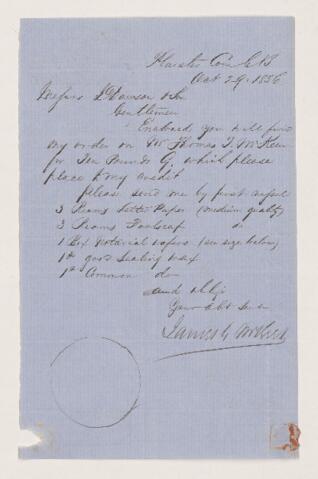 Oct 29. 1856
Messrs Dawson & Son
Gentlemen
Enclosed you will find
my order on Mr Thomas
for Ten Pounds which please
place to my credit
please send me by first vessel
3 Reams Letter Paper (medium quality)
3 Reams Foolscap do
1 Box Notarial wafers (see size below)
1 lb good Sealing wax
1 lb Common do
and oblige
Your Obt Servt
James G